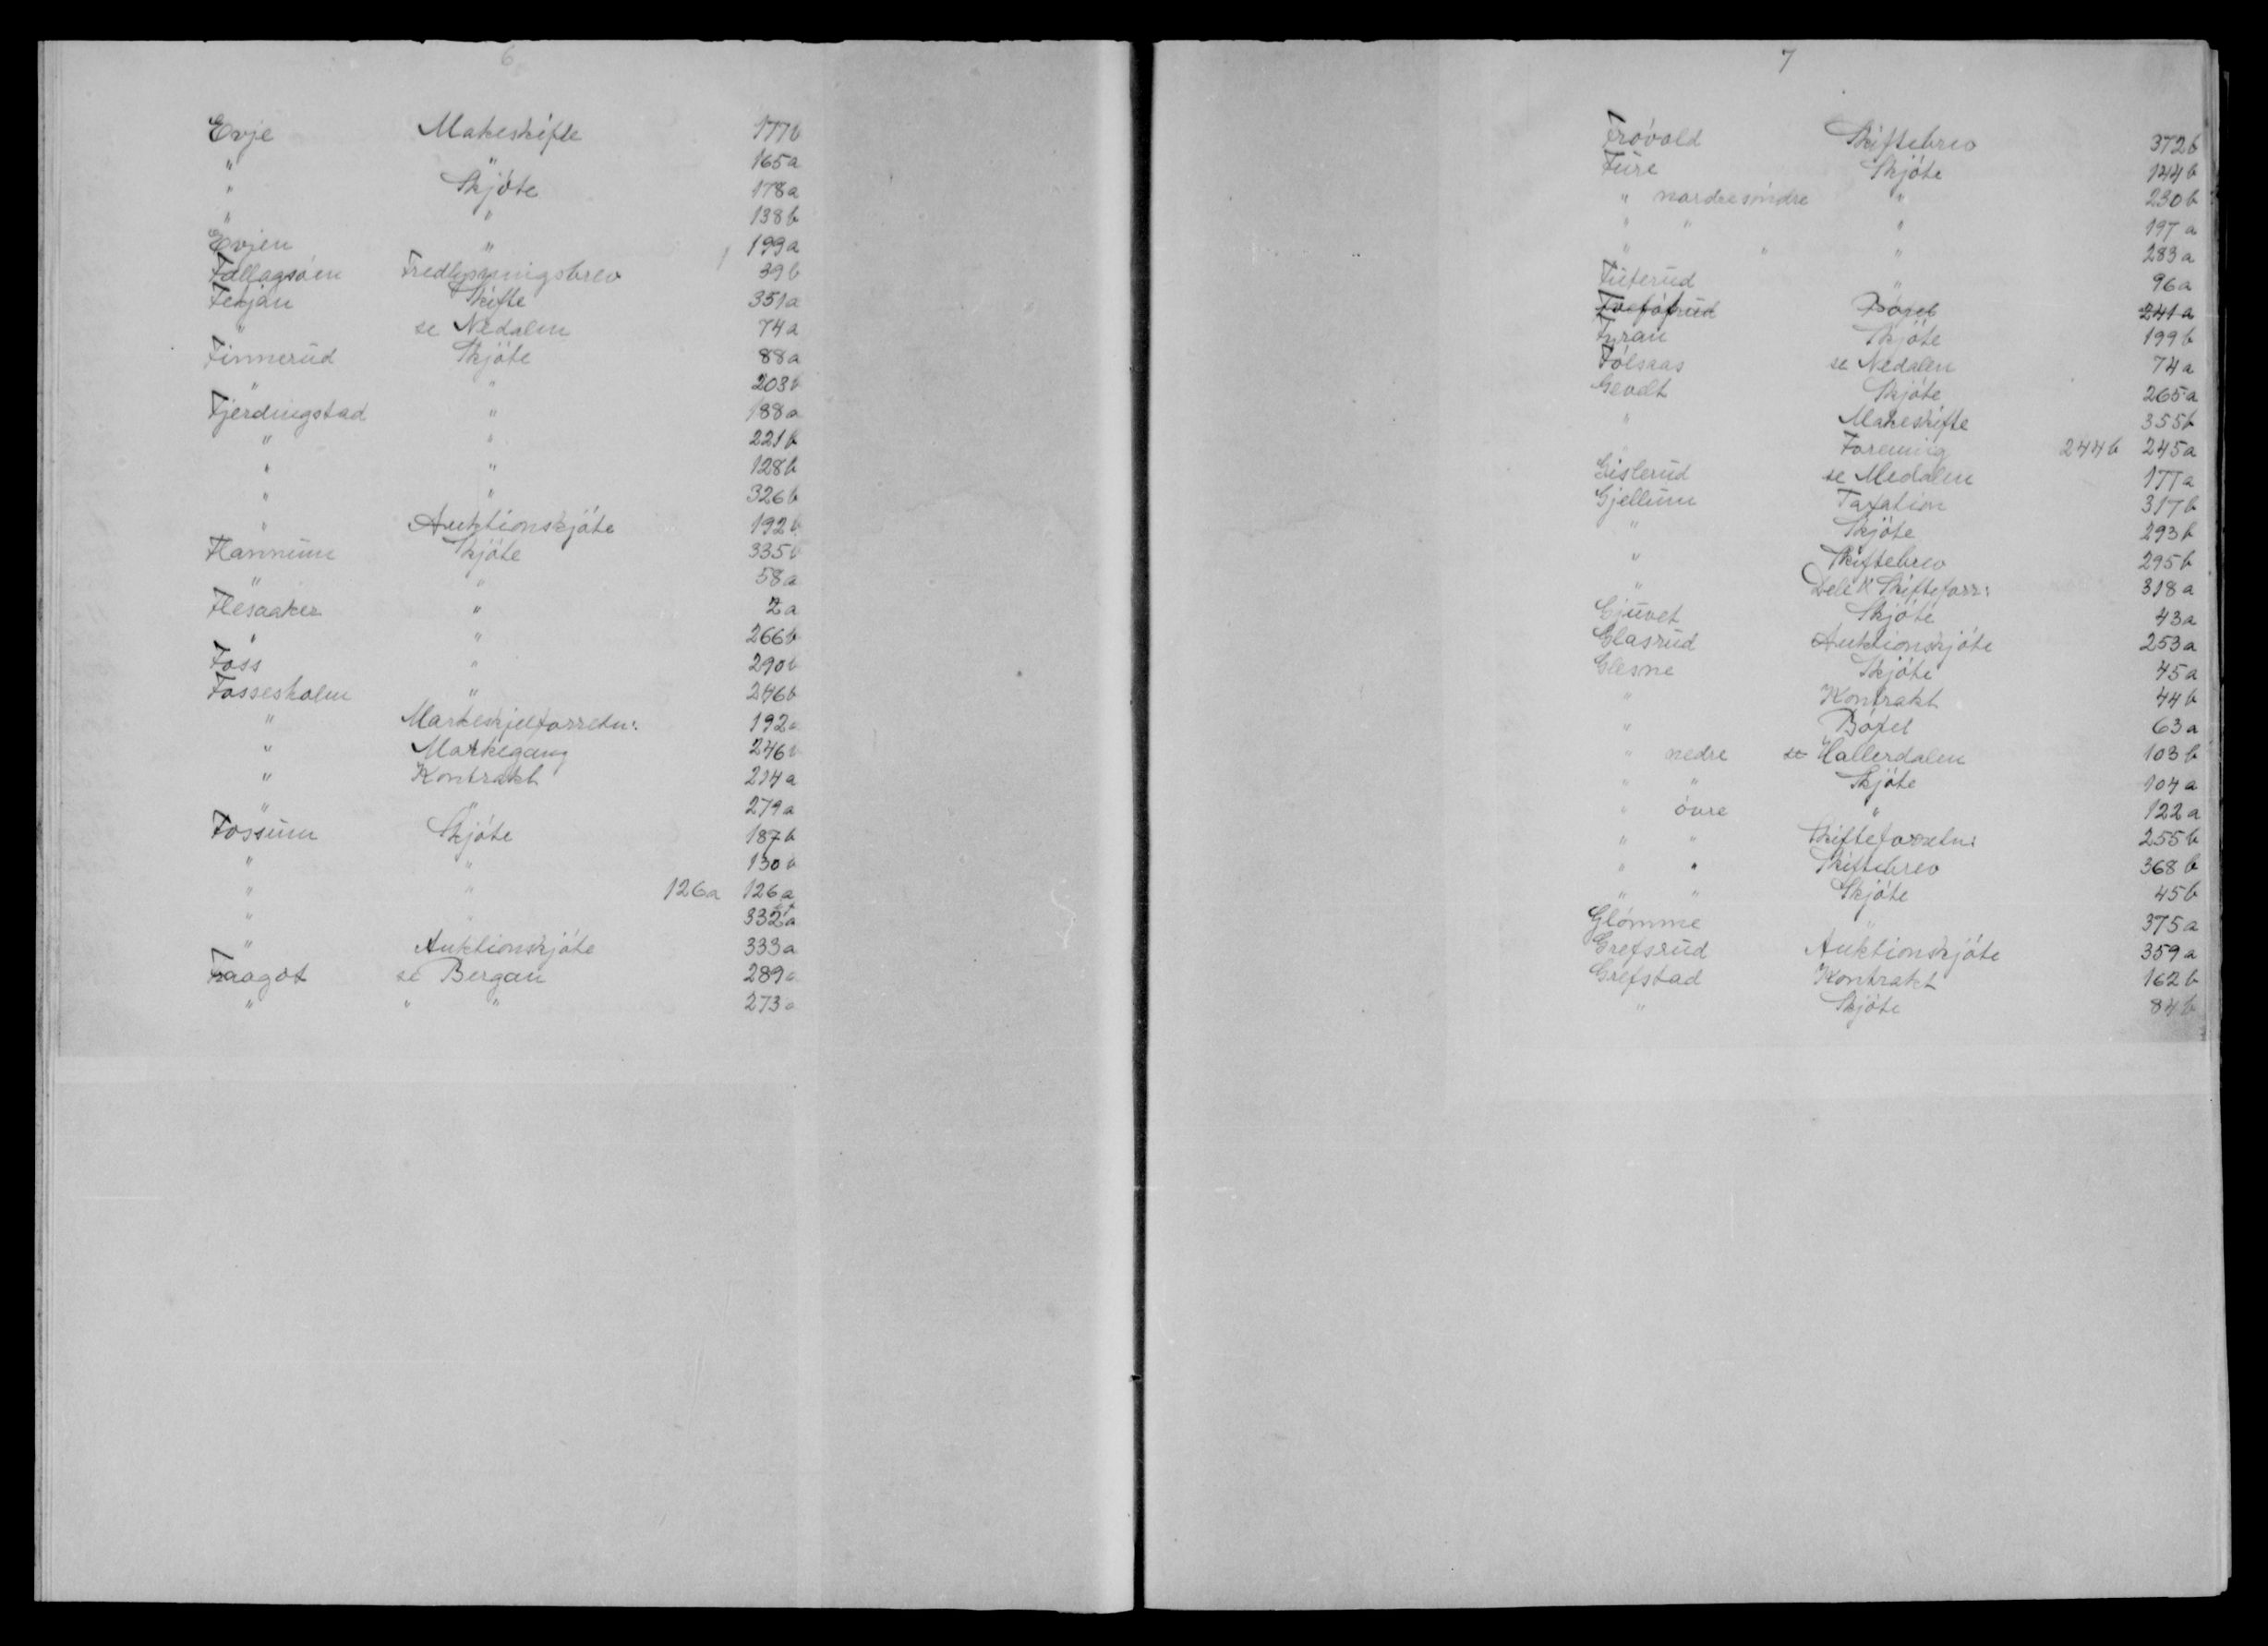 6
Evje Makeskifte 177b
" " 165a
" Skjöte 178a
" " 138b
Evjen " 199a
Fallagsöen Fredlysningsbrev 39b
Fekjan Skifte 351a
" se Nedalen 74a
Finnerud Skjöte 88a
" " 203b
Fjerdingstad " 188a
" " 221b
" " 128b
" " 326b
" Auktionskjöte 192b
Flannum Skjöte 335b
" " 58a
Flesaaker " 2a
" " 266b
Foss " 290b
Fossesholm " 246b
" Markeskjelforretn: 192a
" Markegang 246b
" Kontrakt 214a
" " 279a
Fossum Skjöte 187b
" " 130b
" " 126a 126a
" " 332a
" Auktionskjöte 333a
Fraagot se Bergan 289a
" " " 273a
7
Frövold Skiftebrev 372b
Fure Skjöte 144b
" nordresöndre " 230b
" " " 197a
" " " 283a
Futerud " 96a
Bóxel 241a
Fyran Skjöte 199b
Fölsaas se Nedalen 74a
Gevelt Skjöte 265a
" Makeskifte 355b
" Forening 244b 245a
Gislerud se Medalen 177a
Gjellum Taxation 317b
" Skjöte 293b
" Skiftebrev 295b
" Dele & Skifteforr: 318a
Gjuvet Skjöte 43a
Glasrud Auktionskjöte 253a
Glesne Skjöte 45a
" Kontrakt 44b
" Böxel 63a
" nedre se Hallerdalen 103b
" " Skjöte 104a
" övre " 122a
" " Skifteforretn: 255b
" " Skiftebrev 368b
" " Skjöte 45b
Glömme " 375a
Grefsrud Auktionskjöte 359a
Grefstad Kontrakt 162b
" Skjöte 84b